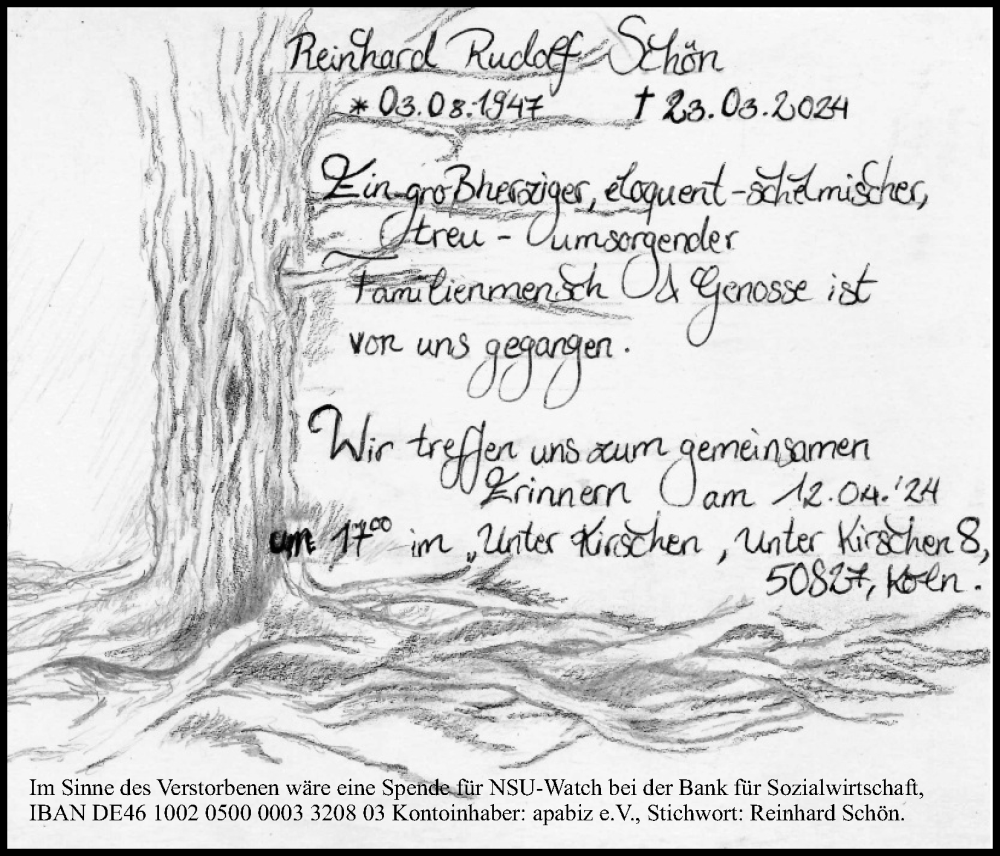 Reinhard Rudolf Schön
* 03.08.1947 † 23.03.2024
Ein großherziger, eloquent-schelmischer,
treu - umsorgender
Familienmensch & Genosse ist
von uns gegangen.
Wir treffen uns zum gemeinsamen
Erinnern am 12.04.'24
um 17⁰⁰ im „Unter Kirschen, Unter Kirschen 8,
50827, Köln.
Im Sinne des Verstorbenen wäre eine Spende für NSU-Watch bei der Bank für Sozialwirtschaft,
IBAN DE46 1002 0500 0003 3208 03 Kontoinhaber: apabiz e.V., Stichwort: Reinhard Schön.